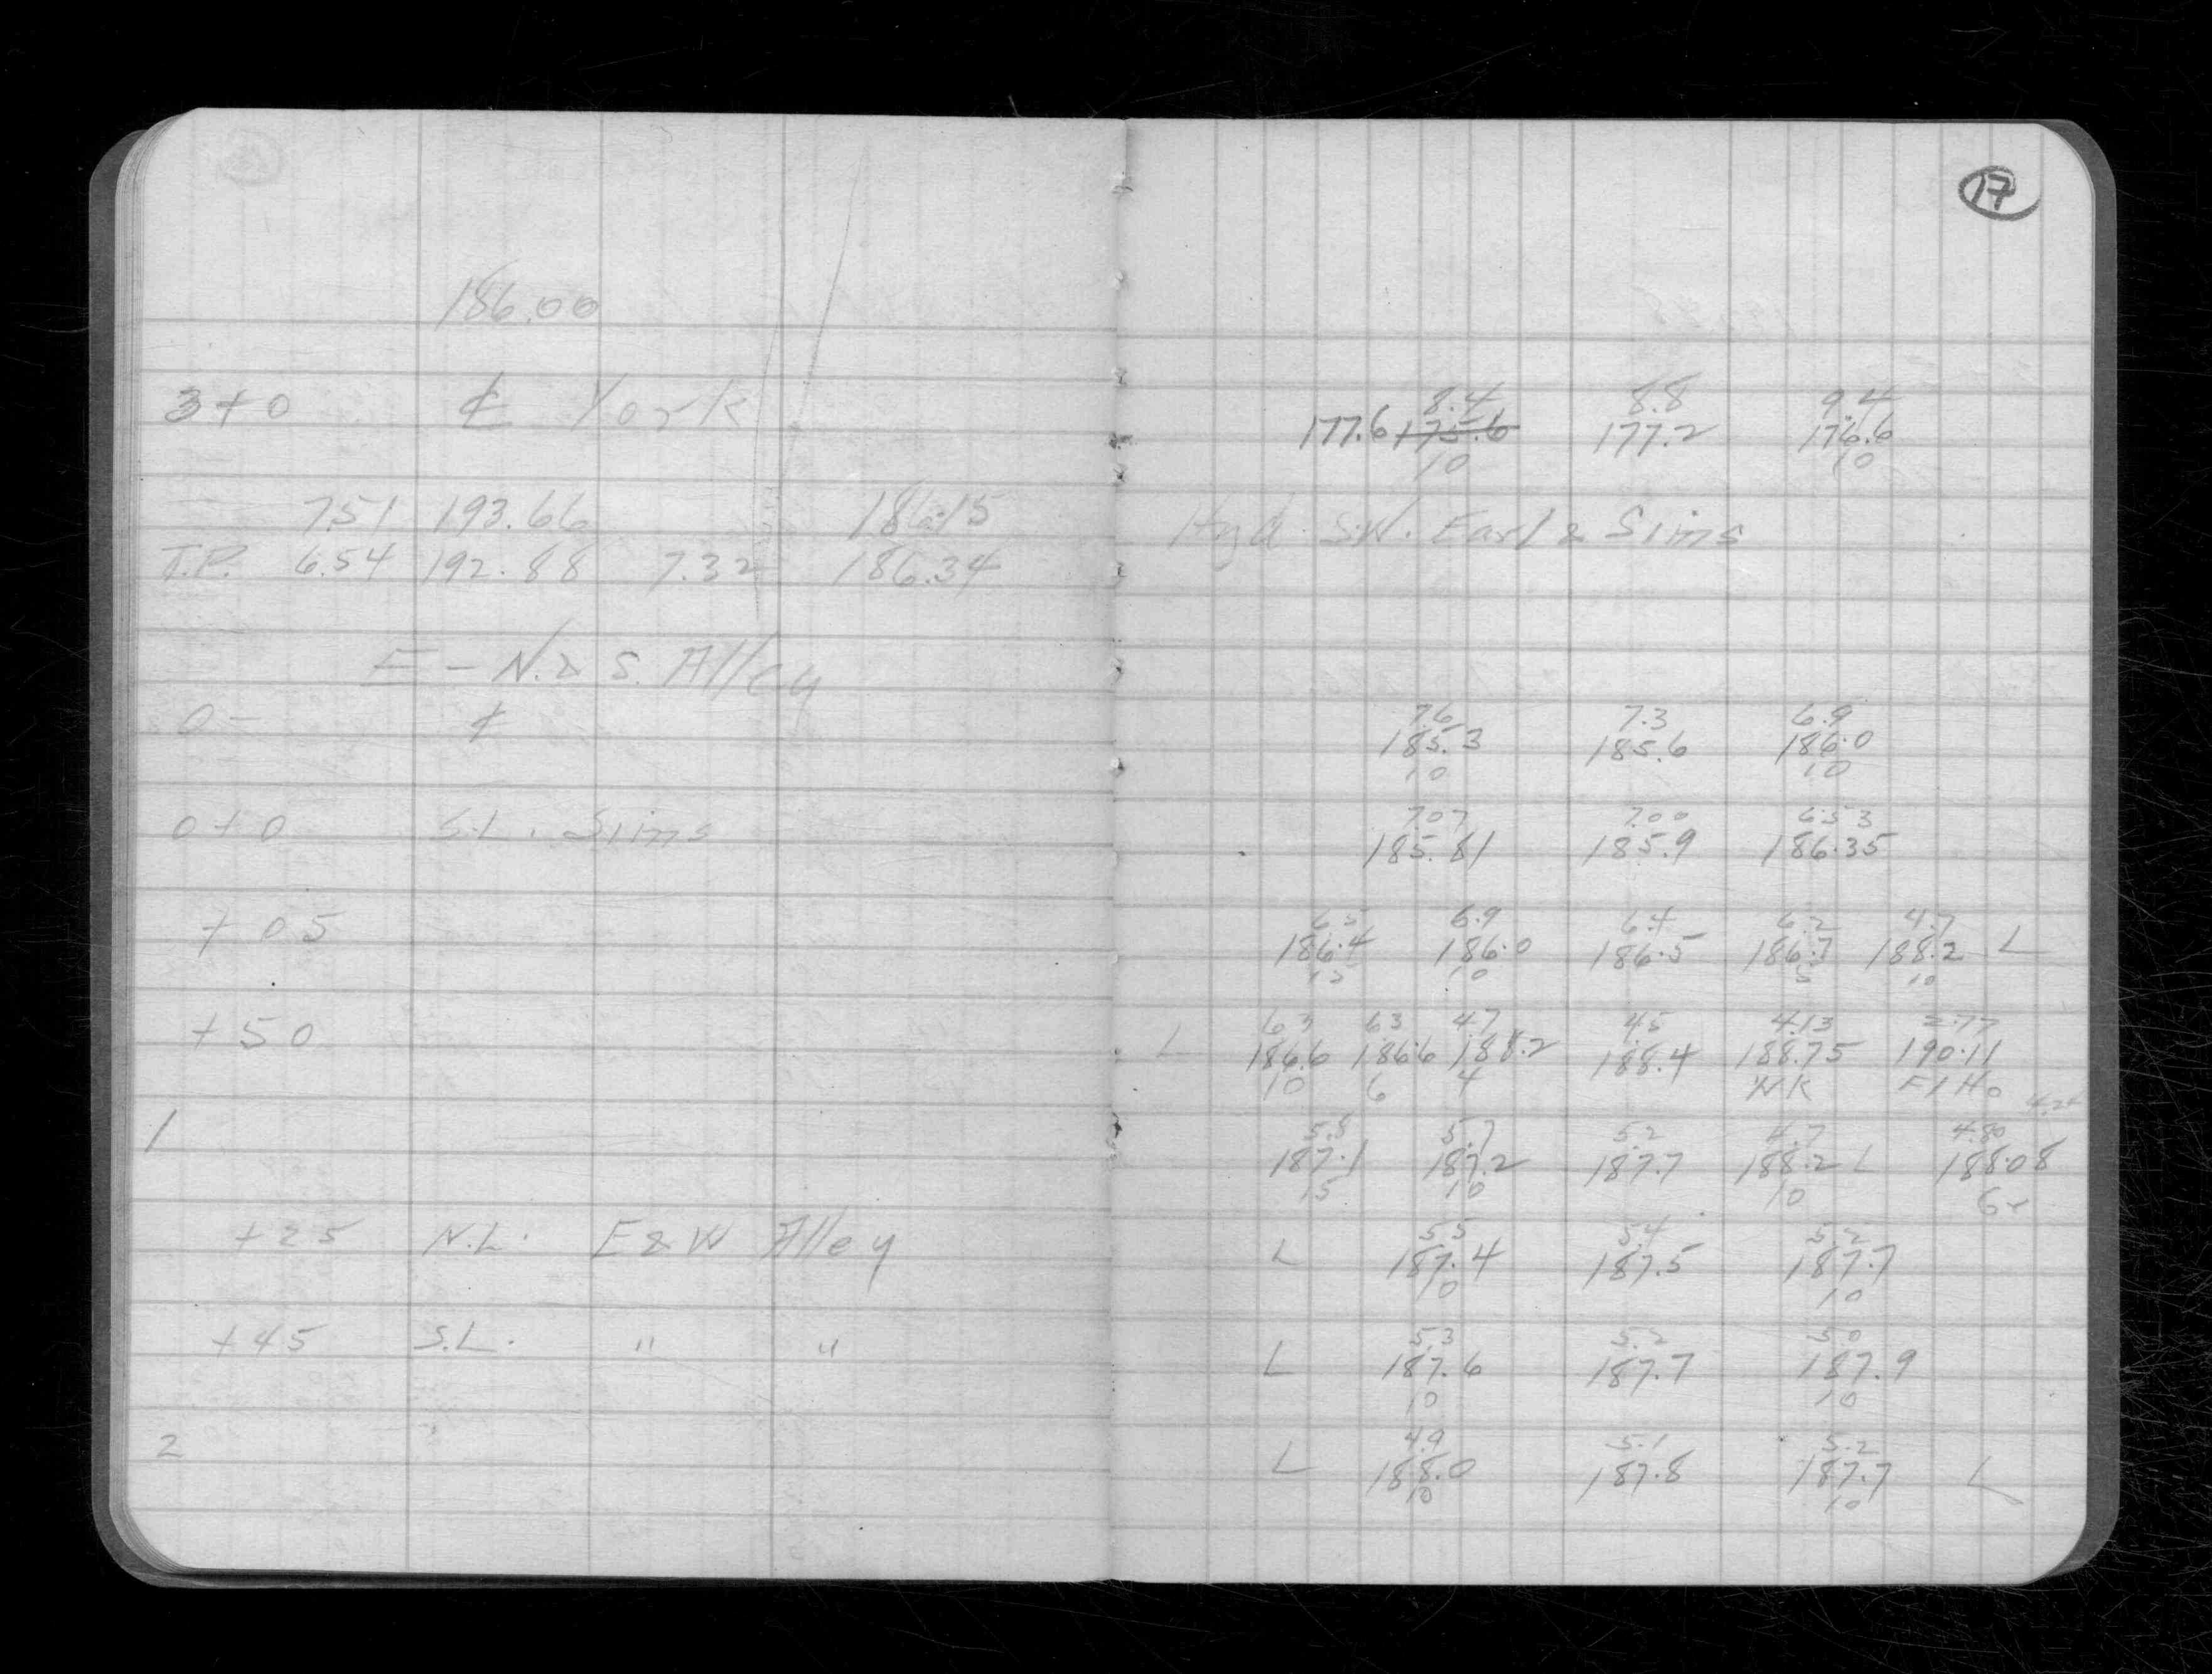 17
186.00
3+0 ⅊ York
8.4 8.8 9.4
177.6 175.6 177.2 176.6
10 10
7.51 193.66 186.15 Hyd. S.W. Earl & Sims
T.P. 6.54 192.88 7.32 186.34
E - N. & S. Alley
0-
7.6 7.3 6.9
185.3 185.6 186.0
10 10
0+0 S.L. Sims
7.07 7.00 6.53
185.81 185.9 186.35
+05
6.5 6.9 6.4 6.2 4.7
186.4 186.0 186.5 186.7 188.2 L
15 10 5 10
+50
6.3 6.3 4.7 4.5 4.13 2.77
L 186.6 186.6 188.2 188.4 188.75 190.11
10 6 4 WK Fl Ho
1
5.8 5.7 5.2 4.7 4.80
187.1 187.2 187.7 188.2 L 188.08
15 10 10
+25 N.L. E & W Alley
5.5 5.4 5.2
L 187.4 187.5 187.7
10 10
+45 S.L. " "
5.3 5.2 5.0
L 187.6 187.7 187.9
10 10
2
4.9 5.1 5.2
L 188.0 187.8 187.7 L
10 10